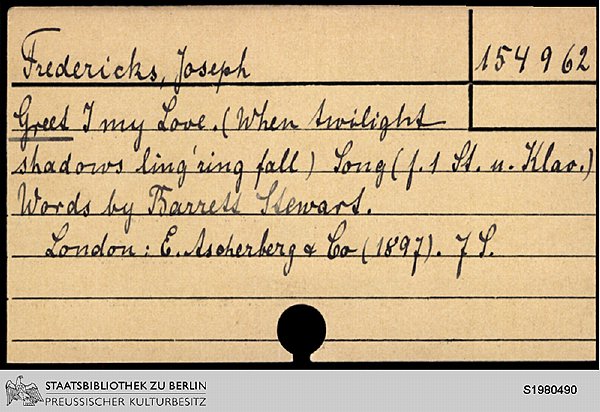 Fredericks, Joseph
154 962
Greet I my Love. (When twilight
shadows ling'ring fall) Song (f. 1 St. u. Klav.)
Words by Barrett Stewart.
London: E. Ascherberg & Co (1897). 7 S.
STAATSBIBLIOTHEK ZU BERLIN
PREUSSISCHER KULTURBESITZ
S1980490